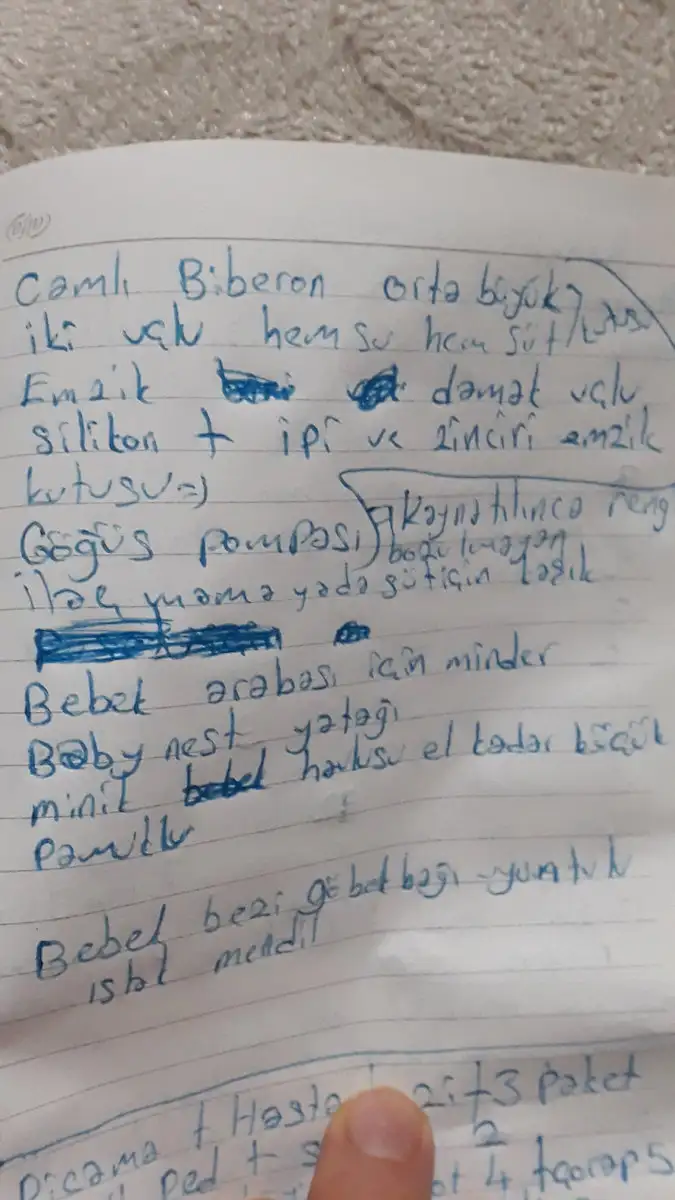 Camlı Biberon orta büyük
iki uçlu hem su hem süt kutusu
Emzik damak uçlu
silikon + ipi ve zinciri emzik
kutusu =)
Göğüs pompası kaynatılınca reng
bozulmayan
ilaç mama yada süt için kaşık
Bebek arabası için minder
Baby nest yatağı
minik havlusu el kadar küçük
pamuklu
Bebek bezi göbek bağı
ıslak mendil
Picama + Hasta zi +3 paket
ped + 2
4